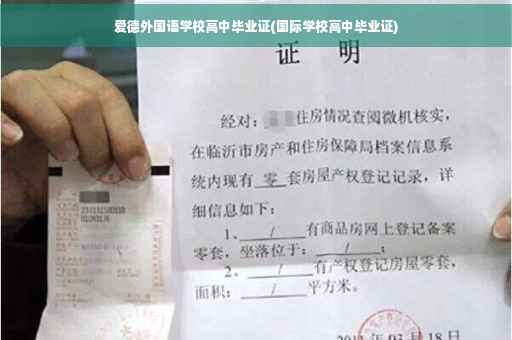 爱德外国语学校高中毕业证(国际学校高中毕业证)
证 明
经对：住房情况查阅微机核实，
在临沂市房产和住房保障局档案信息系
统内现有 零 套房屋产权登记记录，详
细信息如下：
1、 / 有商品房网上登记备案
零套，坐落位于： / ；
2、 / 有产权登记房屋零套，
面积： / 平方米。
03 月 18 日